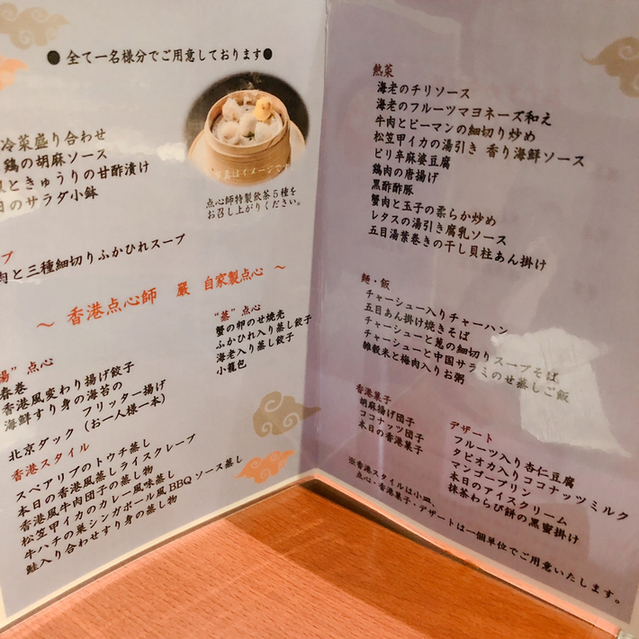 ● 全て一名様分でご用意しております●
冷菜盛り合わせ
鶏の胡麻ソース
ときゅうりの甘酢漬け
日のサラダ小鉢
点心師特製飲茶５種を
お召し上がりください。
プ
肉と三種細切りふかひれスープ
～ 香港点心師 嚴 自家製点心 ～
”点心
春巻
香港風変わり揚げ餃子
海鮮すり身の海苔の
フリッター揚げ
北京ダック（お一人様一本）
“蒸”点心
蟹の卵のせ焼売
ふかひれ入り蒸し餃子
海老入り蒸し餃子
小籠包
香港スタイル
スペアリブのトウチ蒸し
本日の香港風蒸しライスクレープ
香港風牛肉団子の蒸し物
松笠甲イカのカレー風味蒸し
牛ハチの巣シンガポール風BBQソース蒸し
鮭入り合わせすり身の蒸し物
熱菜
海老のチリソース
海老のフルーツマヨネーズ和え
牛肉とピーマンの細切り炒め
松笠甲イカの湯引き 香り海鮮ソース
ピリ辛麻婆豆腐
鶏肉の唐揚げ
黒酢酢豚
蟹肉と玉子の柔らか炒め
レタスの湯引き腐乳ソース
五目湯葉巻きの干し貝柱あん掛け
麺・飯
チャーシュー入りチャーハン
五目あん掛け焼きそば
チャーシューと葱の細切りスープそば
チャーシューと中国サラミのせ蒸しご飯
雑穀米と梅肉入りお粥
香港菓子
胡麻揚げ団子
ココナッツ団子
本日の香港菓子
デザート
フルーツ入り杏仁豆腐
タピオカ入りココナッツミルク
マンゴープリン
本日のアイスクリーム
抹茶わらび餅の黒蜜掛け
※香港スタイルは小皿、
点心・香港菓子・デザートは一個単位でご用意いたします。